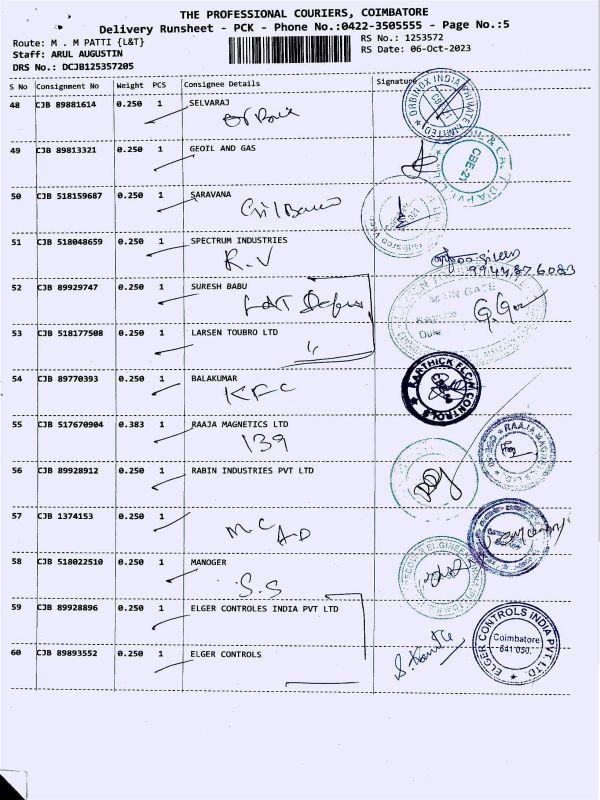 THE PROFESSIONAL COURIERS, COIMBATORE
Delivery Runsheet - PCK - Phone No.:0422-3505555 - Page No.:5
Route: M . M PATTI {L&T}
RS No.: 1253572
Staff: ARUL AUGUSTIN
RS Date: 06-Oct-2023
DRS No.: DCJB125357205
S No Consignment No Weight PCS Consignee Details Signature
48 CJB 89881614 0.250 1 SELVARAJ
49 CJB 89813321 0.250 1 GEOIL AND GAS
50 CJB 518159687 0.250 1 SARAVANA
51 CJB 518048659 0.250 1 SPECTRUM INDUSTRIES
R.V
9944876083
52 CJB 89929747 0.250 1 SURESH BABU
53 CJB 518177508 0.250 1 LARSEN TOUBRO LTD
54 CJB 89770393 0.250 1 BALAKUMAR
KFC
KARTHICK FLOW CONTROLS
55 CJB 517670904 0.383 1 RAAJA MAGNETICS LTD
139
56 CJB 89928912 0.250 1 RABIN INDUSTRIES PVT LTD
57 CJB 1374153 0.250 1
MC
A-D
58 CJB 518022510 0.250 1 MANOGER
S.S
59 CJB 89928896 0.250 1 ELGER CONTROLES INDIA PVT LTD
60 CJB 89893552 0.250 1 ELGER CONTROLS
ELGER CONTROLS INDIA PVT. LTD.
Coimbatore
641 050.